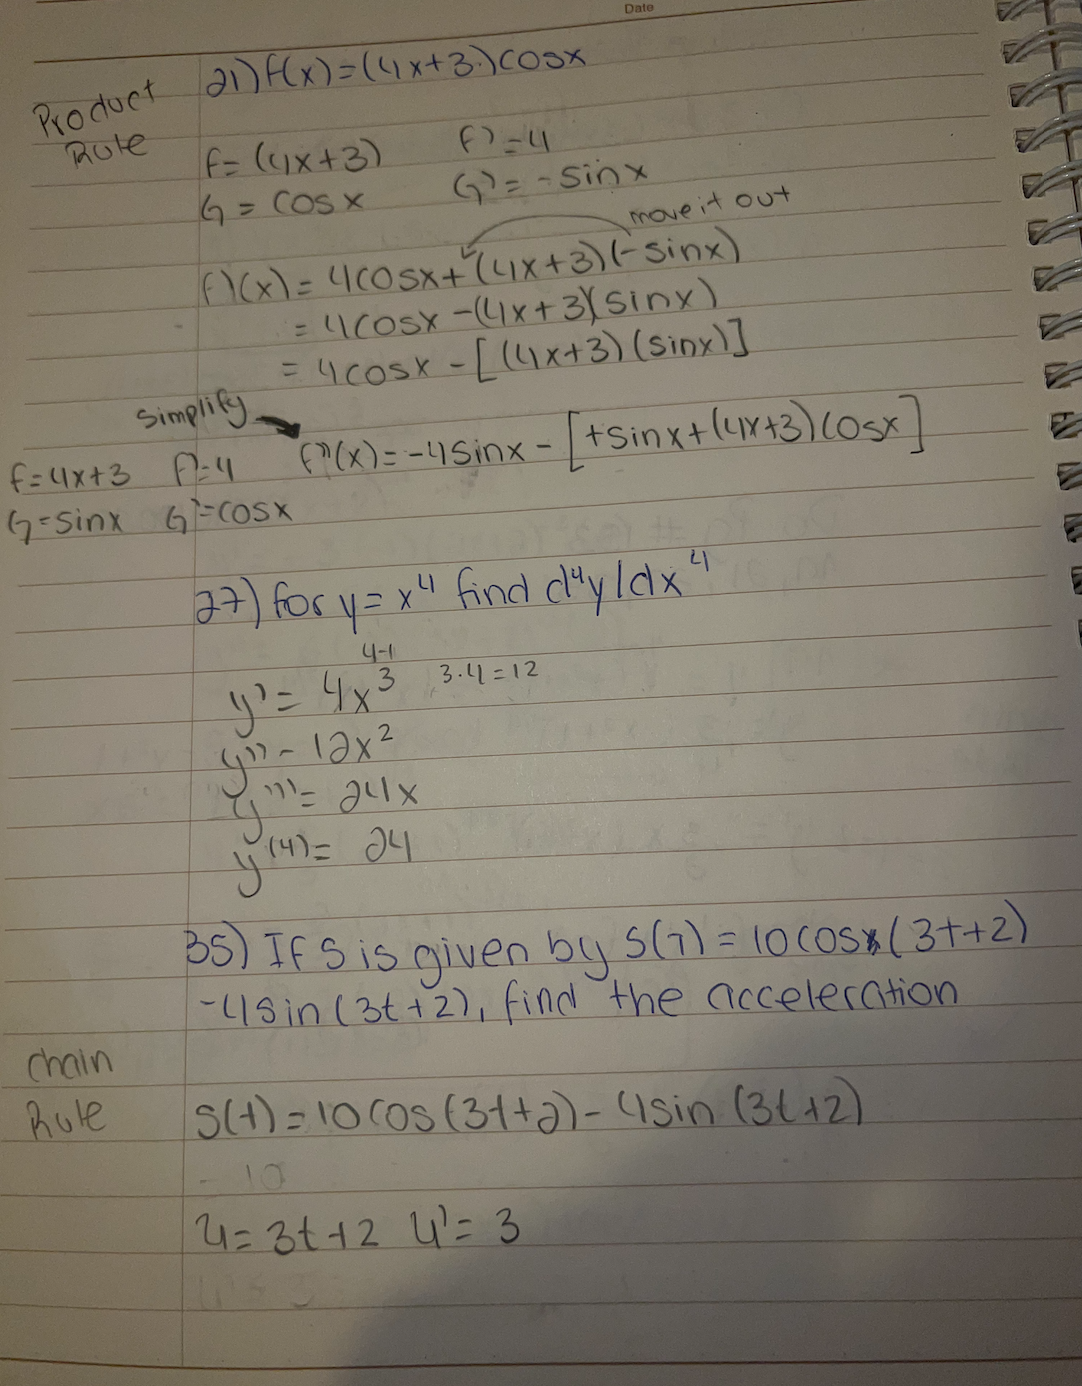 Date
21) f(x)=(4x+3)cosx
Product
Rule
f= (4x+3) f'=4
G= cosx G'= -sinx
move it out
f'(x)= 4cosx+(4x+3)(-sinx)
= 4cosx -(4x+3)(sinx)
= 4cosx - [(4x+3)(sinx)]
Simplify
f''(x)= -4sinx - [+sinx+(4x+3)cosx]
f=4x+3 f'=4
G=sinx G'=cosx
27) for y= x⁴ find d⁴y/dx⁴
4-1
y'= 4x³ 3·4=12
y''- 12x²
y'''= 24x
y⁽⁴⁾= 24
35) If S is given by S(T)=10cos(3t+2)
-4sin(3t+2), find the acceleration
Chain
Rule
S(t)=10cos(3t+2)- 4sin(3t+2)
- 10
u= 3t+2 u'= 3